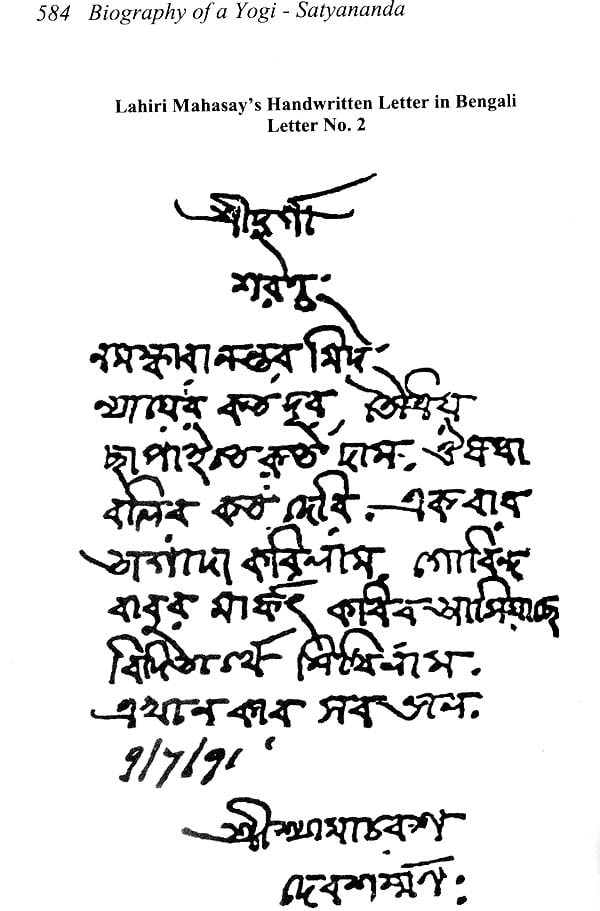 584 Biography of a Yogi - Satyananda
Lahiri Mahasay's Handwritten Letter in Bengali
Letter No. 2
শ্রীদুর্গা
শরণং
নমস্কারানন্তর মিদং
ন্যায়ের কত দূর
ছাপাইতে কত দাম. ঔষধা
বলির কত দেরি. একবার
তাগাদা করিলাম, গোবিন্দ
বাবুর মার্ফৎ আসিয়াছে
বিদিতার্থে লিখিলাম.
এখানকার সব
৭/7/91
শ্রীশ্যামাচরণ
দেবশর্ম্মণঃ